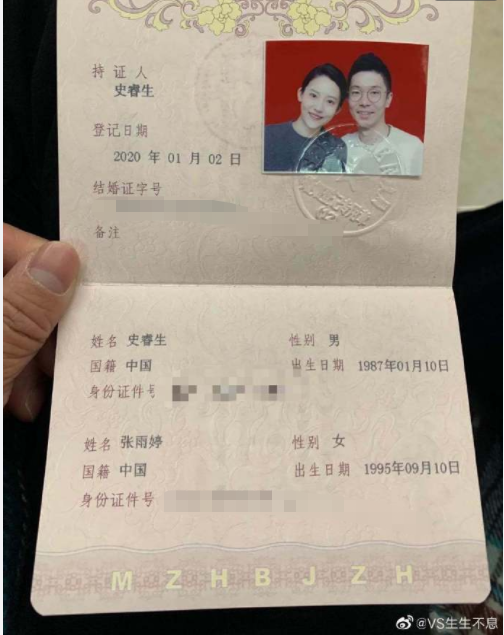 持证人
史睿生
登记日期
2020 年 01 月 02 日
结婚证字号
备注
姓名 史睿生 性别 男
国籍 中国 出生日期 1987年01月10日
身份证件号
姓名 张雨婷 性别 女
国籍 中国 出生日期 1995年09月10日
身份证件号
M Z H B J Z H
@VS生生不息